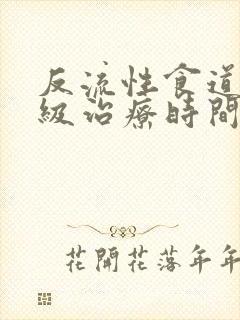 反流性食道
級治療時間
花開花落年年